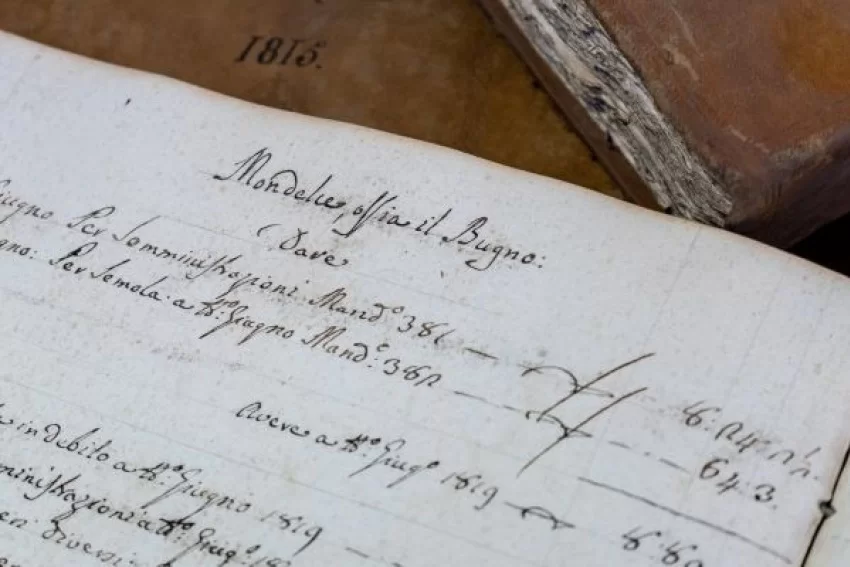 1815.
Mondelce, ossia il Bugno:
Dare
Giugno Per Somministrazioni Mand:º 381
gno: Per Semola a tt:º Giugno Mand:º 382
64 3.
Avere a tt:º Giugº 1819
in debito a tt:º Giugno 1819
ministrazioni a tt:º Giugº:
diversi